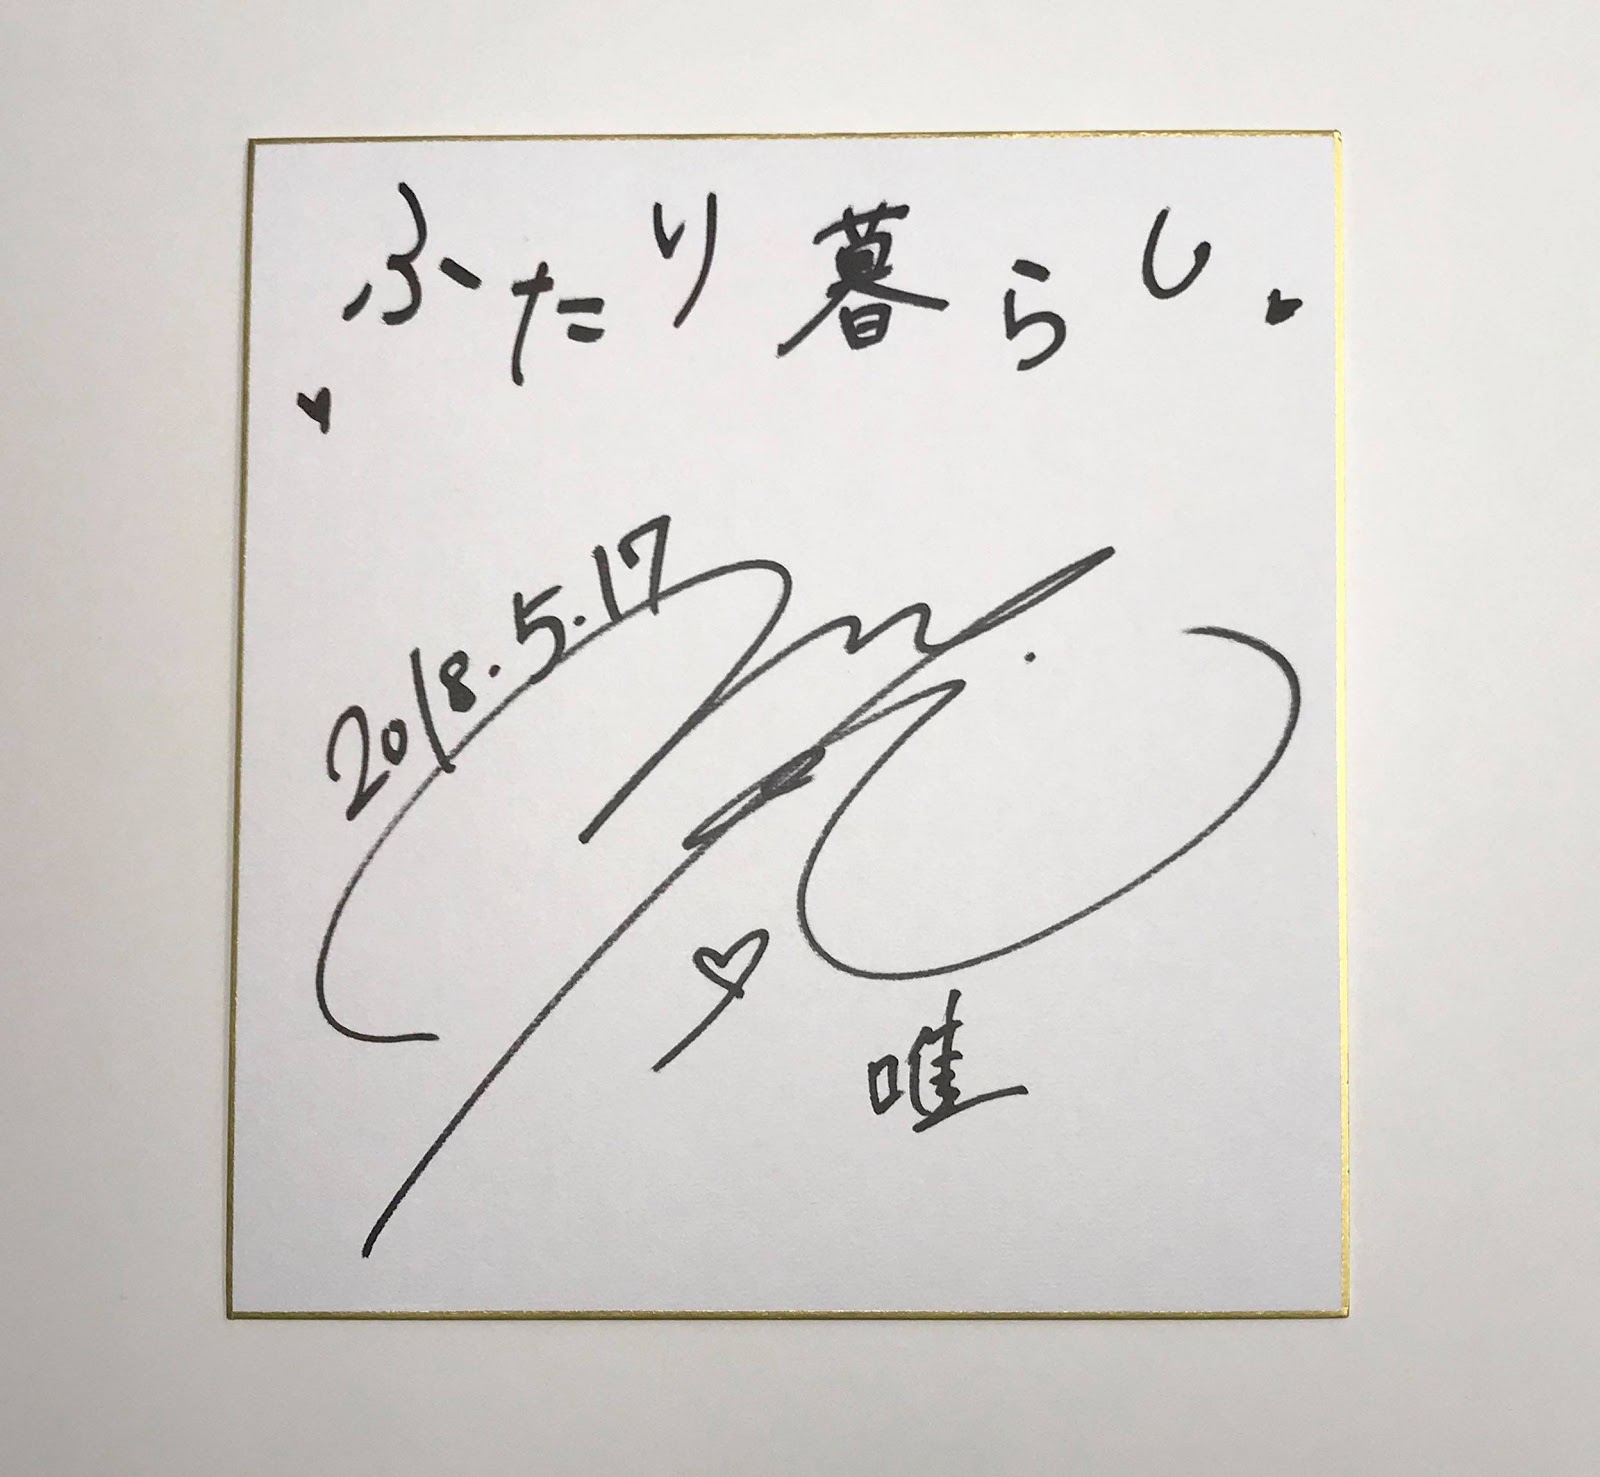 ふたり暮らし
2018.5.17
唯